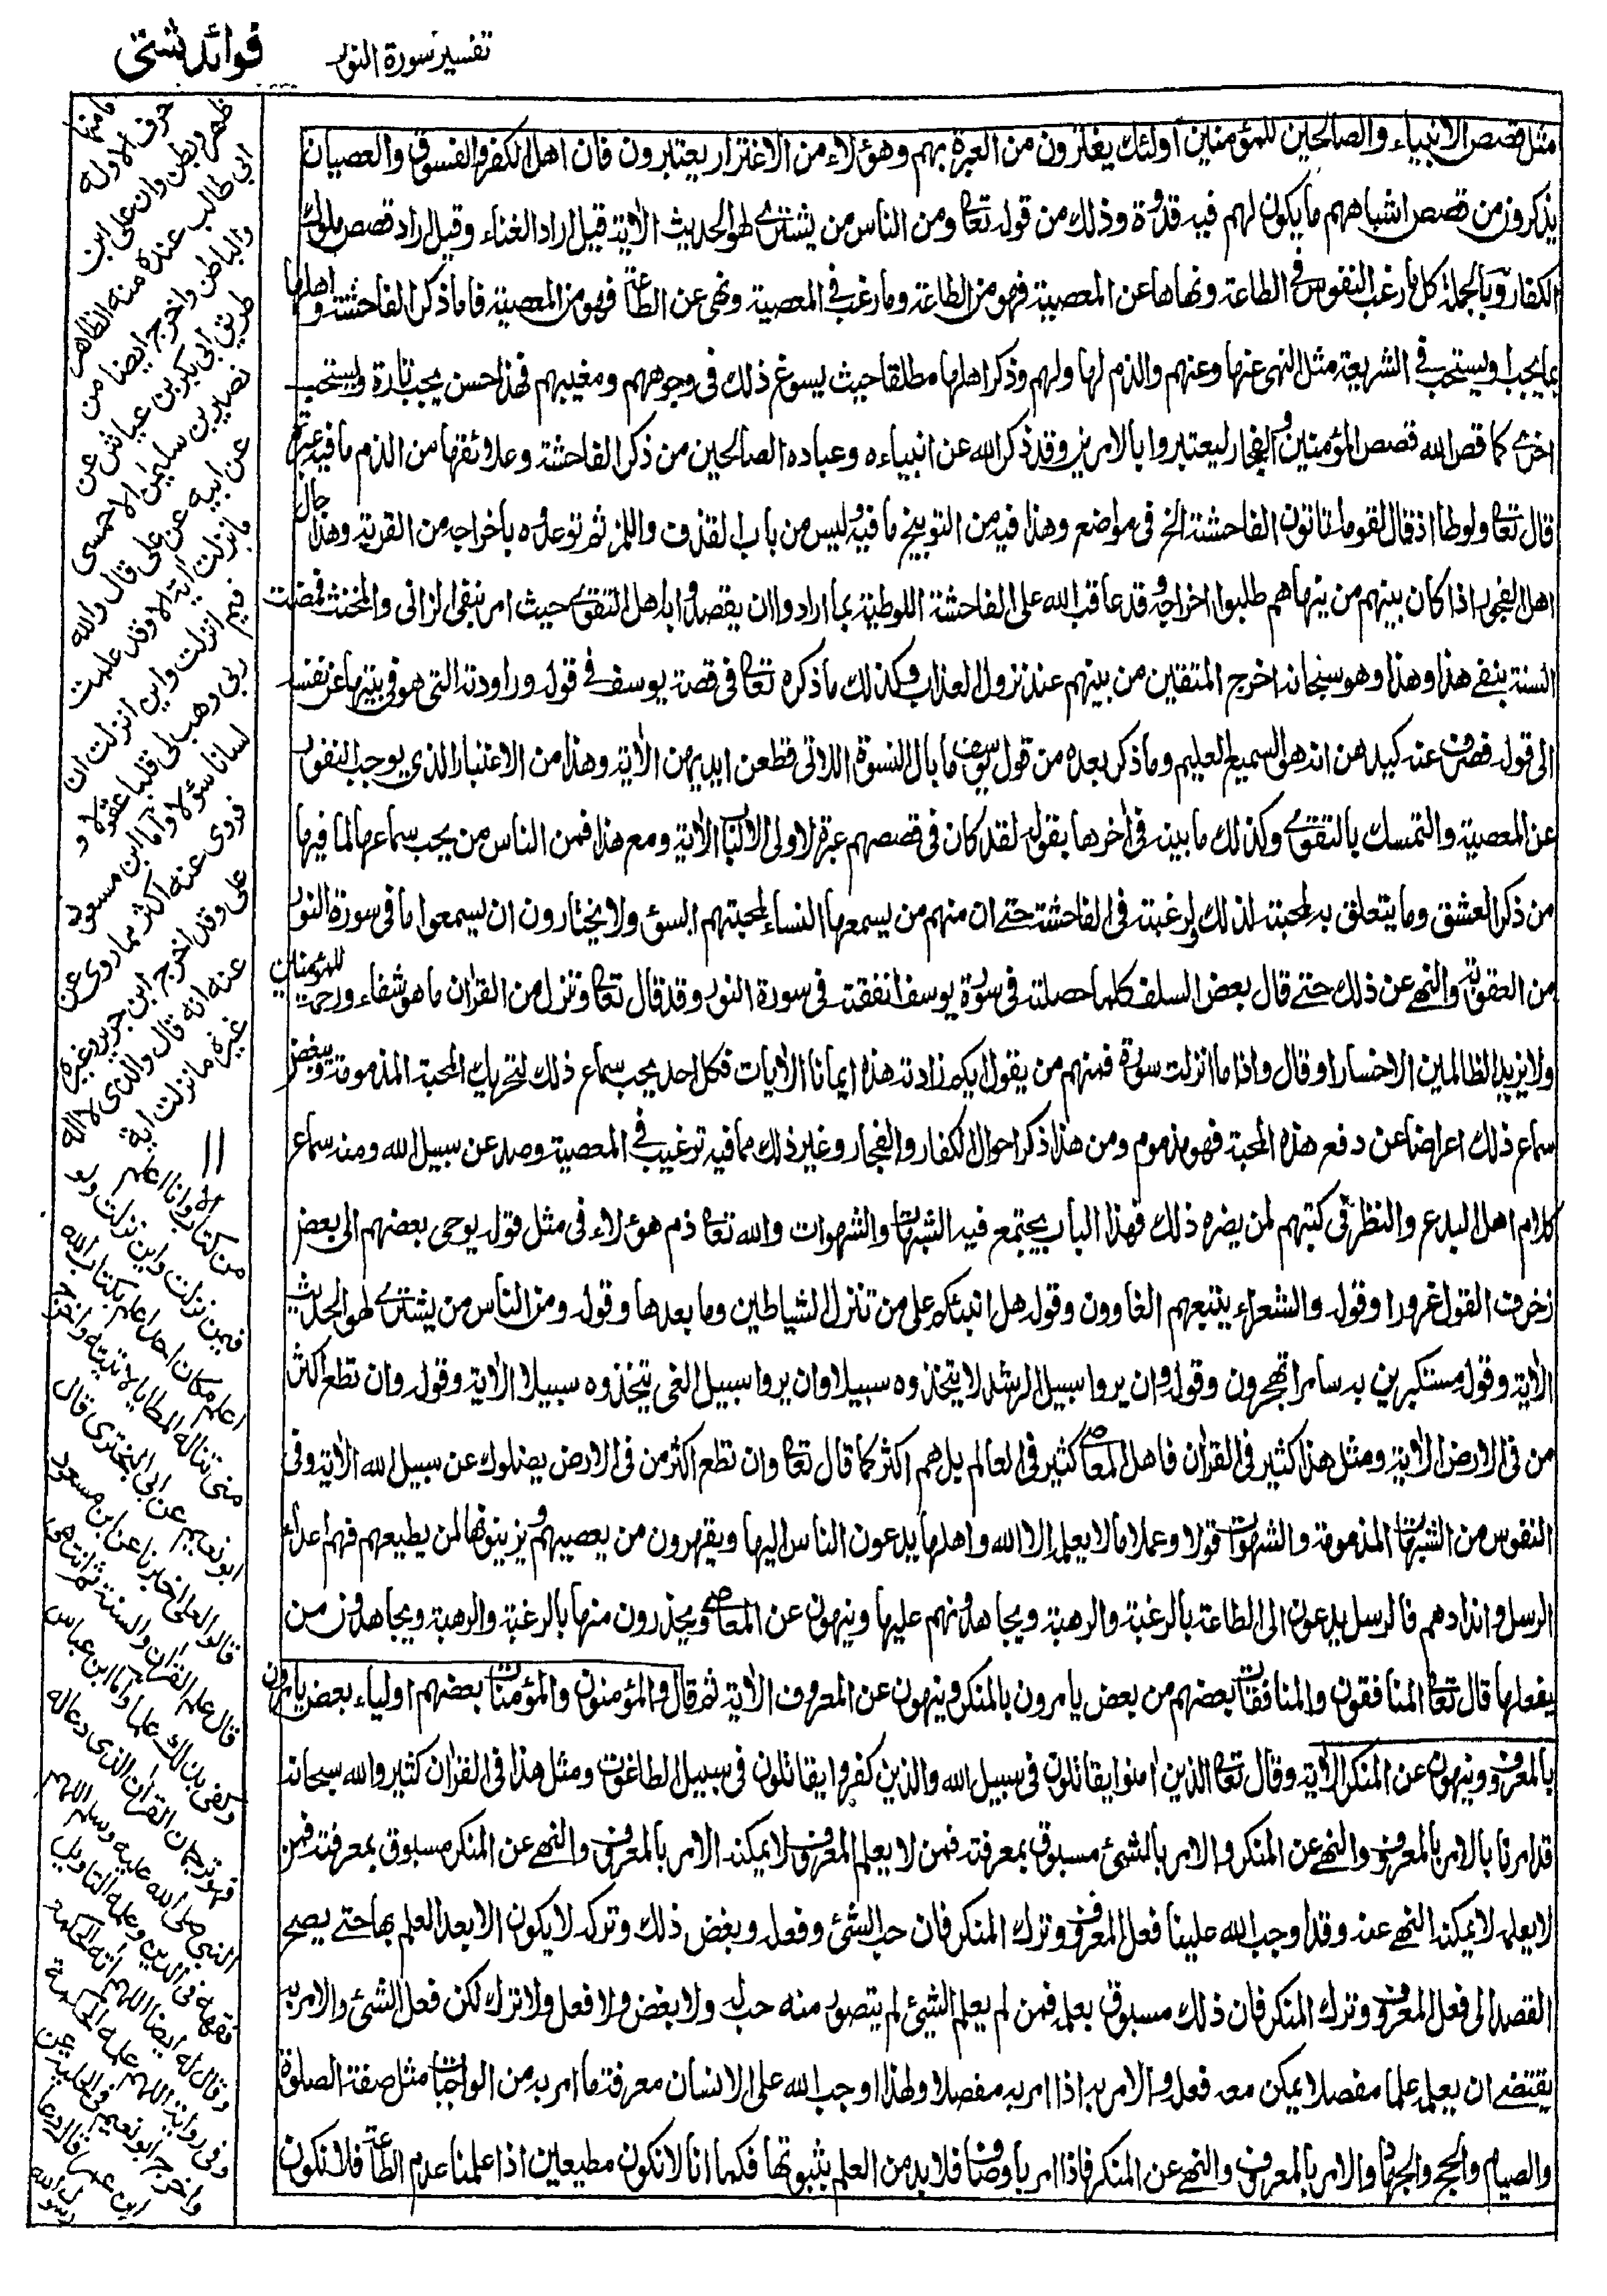 تفسير سورة النور
فوائد شتى
مثل قصص الانبياء والصالحين للمؤمنين اولئك يغترون من العبرة بهم وهؤلاء من الاغترار يعتبرون فان اهل الكفر والفسوق والعصيان
يذكرون من قصص اشباههم ما يكون لهم فيه قدوة وذلك من قوله تعا ومن الناس من يشترى لهو الحديث الاٰية قيل اراد الغناء وقيل اراد قصص ملوك
الكفار وبالجملة كل ما رغب النفوس فى الطاعة ونهاها عن المعصية فهو من الطاعة وما رغب فى المعصية ونهى عن الطاعة فهو من المعصية فاما ذكر الفاحشة و اهلها
بما يجب او يستحب فى الشريعة مثل النهى عنها وعنهم والذم لها ولهم وذكر اهلها مطلقا حيث يسوغ ذلك فى وجوههم ومغيبهم فهذا حسن يجب تارة ويستحب
اخرى كما قص الله قصص المؤمنين و الفجار ليعتبروا بالامرين وقد ذكر الله عن انبيائه وعباده الصالحين من ذكر الفاحشة وعلائقها من الذم ما فيه عبرة
قال تعا ولوطا اذ قال لقومه اتاتون الفاحشة الخ فى مواضع وهذا فيه من التوبيخ ما فيه وليس من باب القذف واللمز ثم توعدوه باخراجه من القرية وهذا حال
اهل الفجور اذا كان بينهم من ينهاهم طلبوا اخراجه وقد عاقب الله على الفاحشة اللوطية بما ارادوا ان يقصدوا به اهل التقوى حيث امر بنفى الزانى والمخنث فمضت
السنة بنفى هذا وهذا وهو سبحانه اخرج المتقين من بينهم عند نزول العذاب وكذلك ما ذكره تعا فى قصة يوسف فى قوله وراودته التى هو فى بيتها عن نفسه
الى قوله فصرف عنه كيدهن انه هو السميع العليم وما ذكر بعده من قول يوسف ما بال النسوة اللاتى قطعن ايديهن الاٰية وهذا من الاعتبار الذى يوجب النفور
عن المعصية والتمسك بالتقوى وكذلك ما بينه فى اٰخرها بقوله لقد كان فى قصصهم عبرة لاولى الالباب الاٰية ومع هذا فمن الناس من يحب سماعها لما فيها
من ذكر العشق وما يتعلق به لمحبته لذلك ولرغبته فى الفاحشة حتى ان منهم من يسمعها النساء لمحبتهم السوء ولا يختارون ان يسمعوا ما فى سورة النور
من العقوبة والنهى عن ذلك حتى قال بعض السلف كلما حصلته فى سورة يوسف انفقته فى سورة النور وقد قال تعا وننزل من القراٰن ما هو شفاء ورحمة للمؤمنين
ولا يزيد الظالمين الا خسارا وقال واذا ما انزلت سورة فمنهم من يقول ايكم زادته هذه ايمانا الاٰيات فكل احد يحب سماع ذلك لتحريك المحبة المذمومة ويبغض
سماع ذلك اعراضا عن دفع هذه المحبة فهو مذموم ومن هذا ذكر احوال الكفار والفجار وغير ذلك مما فيه ترغيب فى المعصية وصد عن سبيل الله ومنه سماع
كلام اهل البدع والنظر فى كتبهم لمن يضره ذلك فهذا الباب يجتمع فيه الشبهات والشهوات والله تعا ذم هؤلاء فى مثل قوله يوحى بعضهم الى بعض
زخرف القول غرورا وقوله والشعراء يتبعهم الغاوون وقوله هل انبئكم على من تنزل الشياطين وما بعدها وقوله ومن الناس من يشترى لهو الحديث
الاٰية وقوله مستكبرين به سامرا تهجرون وقوله وان يروا سبيل الرشد لا يتخذوه سبيلا وان يروا سبيل الغى يتخذوه سبيلا الاٰية وقوله وان تطع اكثر
من فى الارض الاٰية ومثل هذا كثير فى القراٰن فاهل المعاصى كثير فى العالم بل هم اكثر كما قال تعا وان تطع اكثر من فى الارض يضلوك عن سبيل الله الاٰية وفى
النفوس من الشبهات المذمومة والشهوات قولا وعملا ما لا يعلمه الا الله واهلها يدعون الناس اليها ويقهرون من يعصيهم ويزينونها لمن يطيعهم فهم اعداء
الرسل واندادهم فالرسل يدعون الى الطاعة بالرغبة والرهبة ويجاهدونهم عليها وينهون عن المعاصى ويحذرون منها بالرغبة والرهبة ويجاهدون من
يفعلها قال تعا المنافقون والمنافقات بعضهم من بعض يامرون بالمنكر وينهون عن المعروف الاٰية ثم قال والمؤمنون والمؤمنات بعضهم اولياء بعض يامرون
بالمعروف وينهون عن المنكر الاٰية وقال تعا الذين اٰمنوا يقاتلون فى سبيل الله والذين كفروا يقاتلون فى سبيل الطاغوت ومثل هذا فى القراٰن كثير والله سبحانه
قد امرنا بالامر بالمعروف والنهى عن المنكر والامر بالشئ مسبوق بمعرفته فمن لا يعلم المعروف لا يمكنه الامر بالمعروف والنهى عن المنكر مسبوق بمعرفته فمن
لا يعلمه لا يمكنه النهى عنه وقد اوجب الله علينا فعل المعروف وترك المنكر فان حب الشئ وفعله وبغض ذلك وتركه لا يكون الا بعد العلم بها حتى يصح
القصد الى فعل المعروف وترك المنكر فان ذلك مسبوق بعلمه فمن لم يعلم الشئ لم يتصور منه حب له ولا بغض ولا فعل ولا ترك لكن فعل الشئ والامر به
يقتضى ان يعلم علما مفصلا يمكن معه فعله والامر به اذا امر به مفصلا ولهذا اوجب الله على الانسان معرفة ما امر به من الواجبات مثل صفة الصلوة
والصيام والحج والجهاد والامر بالمعروف والنهى عن المنكر فاذا امر باوصاف فلا بد من العلم بثبوتها فكما انا لا نكون مطيعين اذا علمنا عدم الطاعة فلا نكون
ما منها
حرف الا وله
ظهر وبطن وان على ابن
ابى طالب عنده منه الظاهر
والباطن واخرج ايضا من
طريق ابى بكر بن عياش عن
نصير بن سليمٰن الاحمسى
عن ابيه عن على قال والله
ما نزلت اٰية الا وقد علمت
فيم انزلت واين انزلت ان
ربى وهب لى قلبا عقولا و
لسانا سؤلا واما ابن مسعود
فروى عنه اكثر مما روى عن
على وقد اخرج ابن جرير وغيره
عنه انه قال والذى لا اله
غيره ما نزلت اية
من كتاب الله الا وانا اعلم
فيمن نزلت واين نزلت ولو
اعلم مكان احد اعلم بكتاب الله
منى تناله المطايا لاتيته واخرج
ابو نعيم عن ابى البخترى قال
قالوا لعلى اخبرنا عن ابن مسعود
قال علم القراٰن والسنة ثم انتهى
وكفى بذلك علما واما ابن عباس
فهو ترجمان القراٰن الذى دعا له
النبى صلى الله عليه وسلم اللهم
فقهه فى الدين وعلمه التاويل
وقال له ايضا اللهم اٰته الحكمة
وفى رواية اللهم علمه الحكمة
واخرج ابو نعيم فى الحلية عن
ابن عمر قال دعا
رسول الله